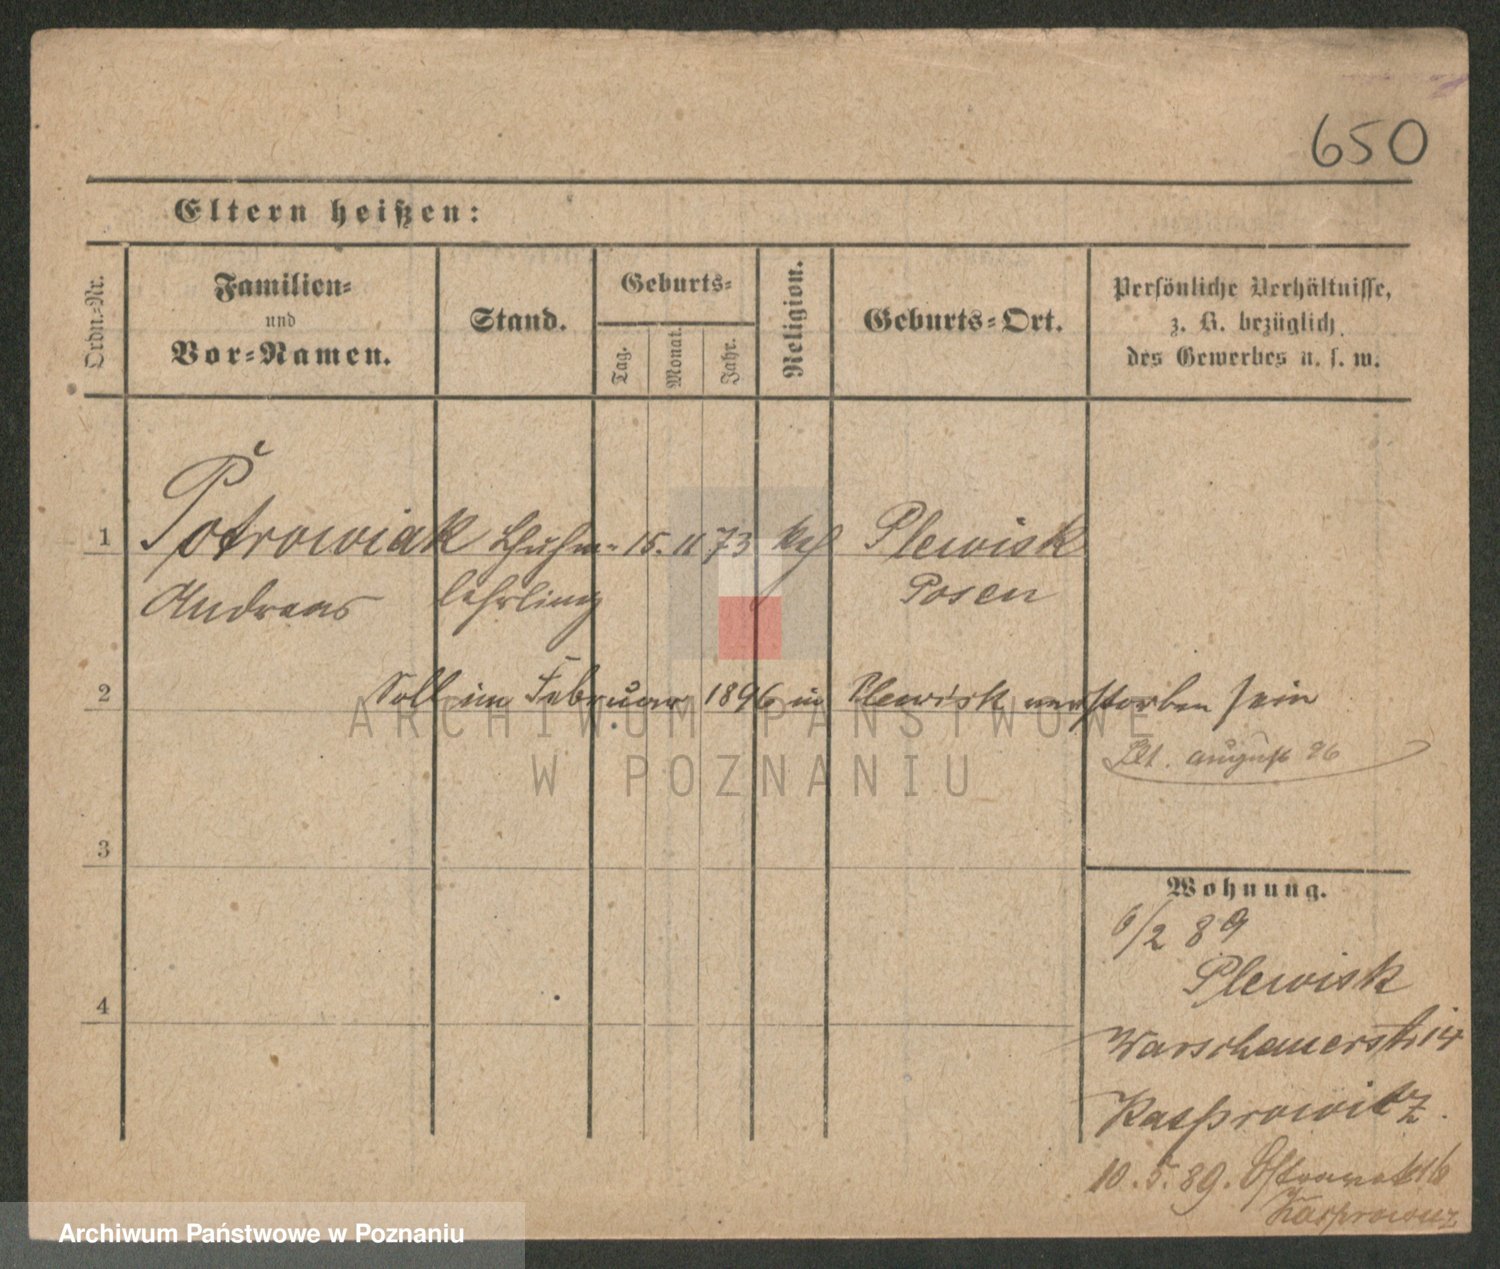 650
Eltern heißen:
Ordn.-Nr.
Familien-
und
Vor-Namen.
Stand.
Geburts-
Tag.
Monat.
Jahr.
Religion.
Geburts-Ort.
Persönliche Verhältnisse,
z. B. bezüglich
des Gewerbes u. s. w.
1 Potrowiak Schuhm- 15. 11 73 kath Plewisk
Andreas lehrling Posen
2 Soll im Februar 1896 in Plewisk verstorben sein
august 96
3
Wohnung.
6/2 89
Plewisk
4
Warschauerstr 14
Kasprowitz.
10. 5. 89. Ostrowek 16
Kasprowicz
ARCHIWUM PAŃSTWOWE
W POZNANIU
Archiwum Państwowe w Poznaniu